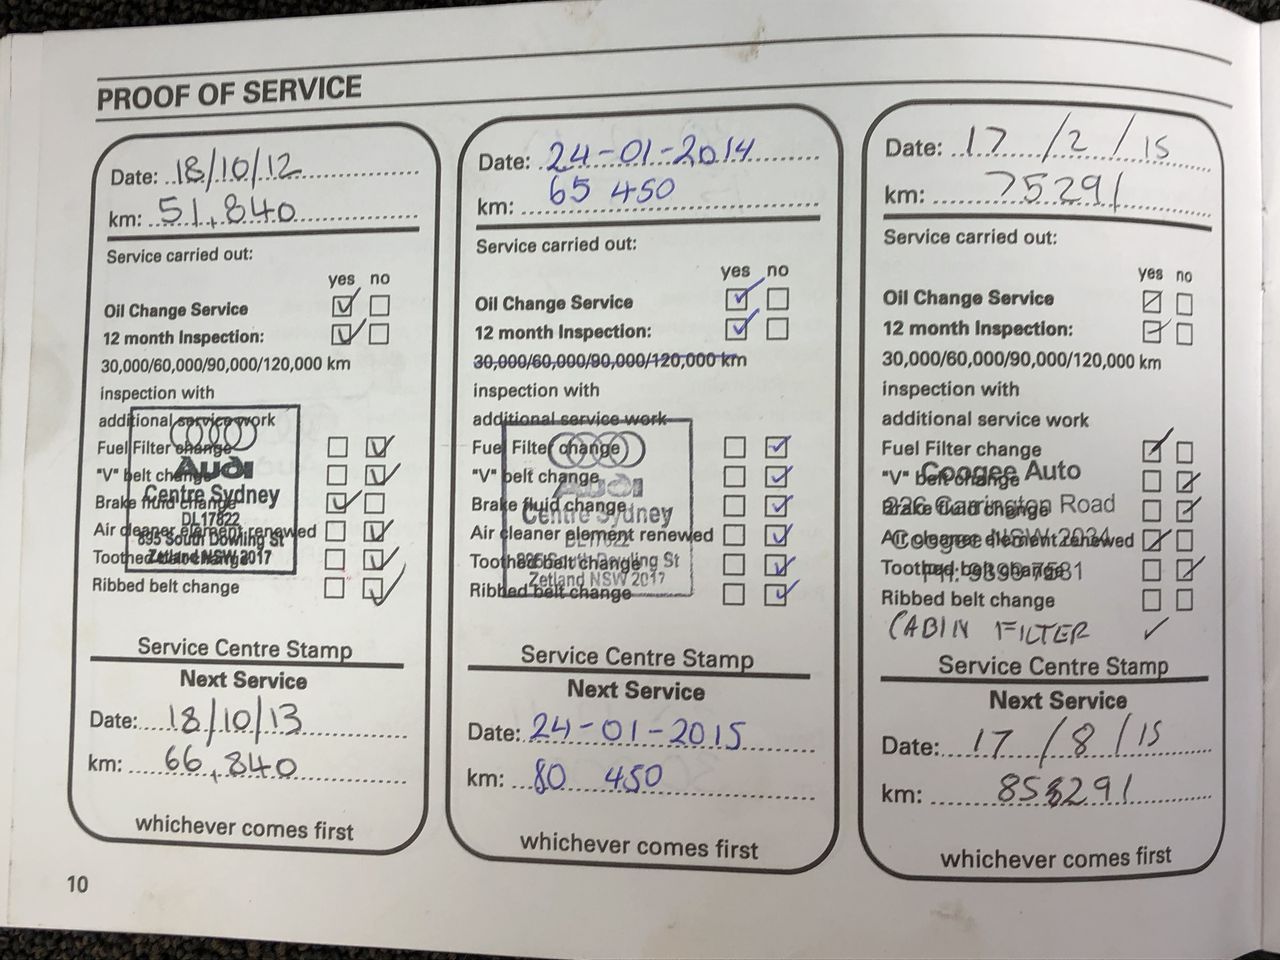 PROOF OF SERVICE
Date: 18/10/12
km: 51,840
Service carried out:
yes no
Oil Change Service
12 month Inspection:
30,000/60,000/90,000/120,000 km
inspection with
additional service work
Fuel Filter change
"V" belt change
Brake fluid change
Air cleaner element renewed
Toothed belt change
Ribbed belt change
Audi
Centre Sydney
DL17822
895 South Dowling St
Zetland NSW 2017
Service Centre Stamp
Next Service
Date: 18/10/13
km: 66,840
whichever comes first
Date: 24-01-2014
km: 65 450
Service carried out:
yes no
Oil Change Service
12 month Inspection:
30,000/60,000/90,000/120,000 km
inspection with
additional service work
Fuel Filter change
"V" belt change
Brake fluid change
Air cleaner element renewed
Toothed belt change
Ribbed belt change
Audi
Centre Sydney
DL17822
895 South Dowling St
Zetland NSW 2017
Service Centre Stamp
Next Service
Date: 24-01-2015
km: 80 450
whichever comes first
Date: 17/2/15
km: 75291
Service carried out:
yes no
Oil Change Service
12 month Inspection:
30,000/60,000/90,000/120,000 km
inspection with
additional service work
Fuel Filter change
"V" belt change
Brake fluid change
Air cleaner element renewed
Toothed belt change
Ribbed belt change
Coogee Auto
Carrington Road
Coogee NSW 2034
CABIN FILTER
Service Centre Stamp
Next Service
Date: 17/8/15
km:
whichever comes first
10